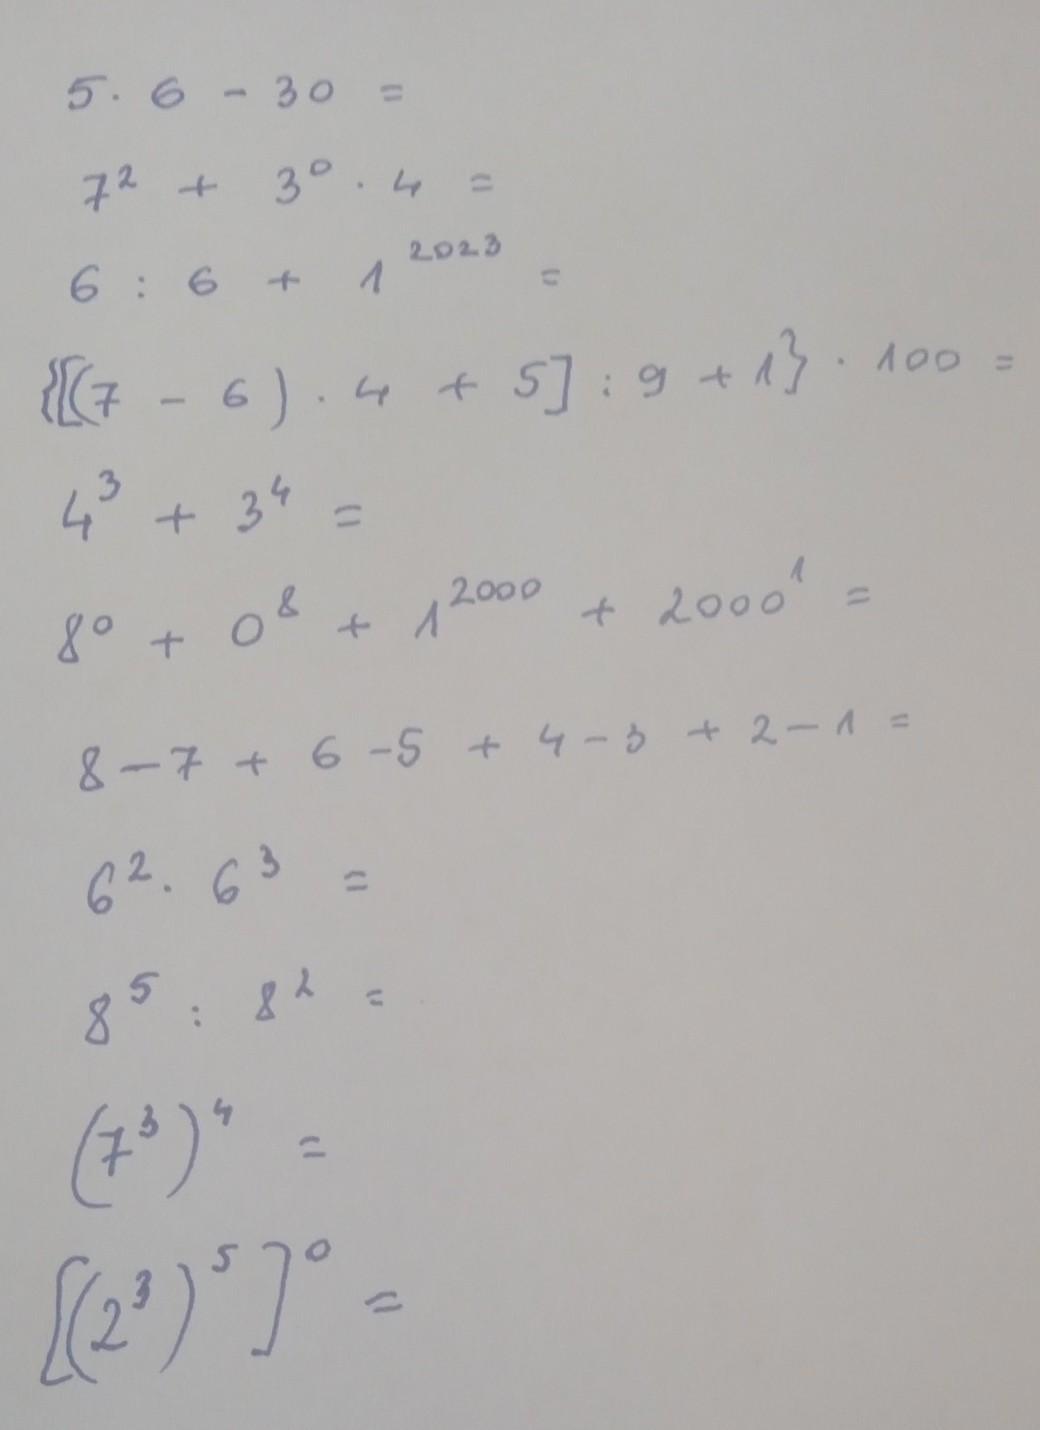 5 · 6 - 30 =
7² + 3⁰ · 4 =
6 : 6 + 1²⁰²³ =
{[(7 - 6) · 4 + 5] : 9 + 1} · 100 =
4³ + 3⁴ =
8⁰ + 0⁸ + 1²⁰⁰⁰ + 2000¹ =
8 - 7 + 6 - 5 + 4 - 3 + 2 - 1 =
6² · 6³ =
8⁵ : 8² =
(7³)⁴ =
[(2³)⁵]⁰ =